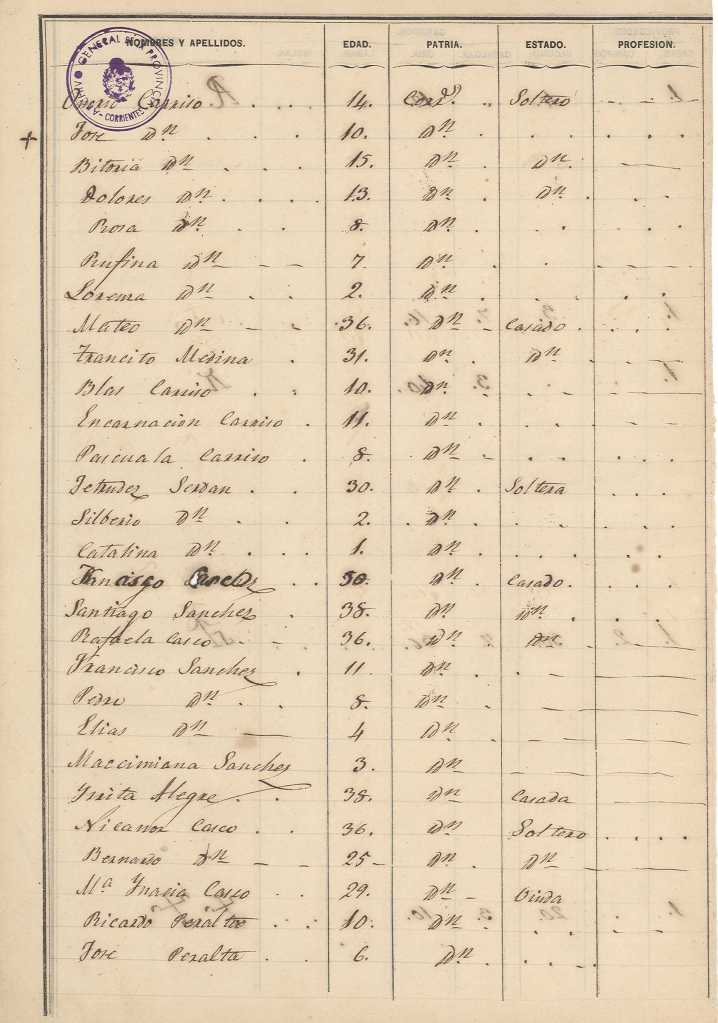 NOMBRES Y APELLIDOS. EDAD. PATRIA. ESTADO. PROFESION.
ARCHIVO GENERAL DE LA PROVINCIA - CORRIENTES
Onorio Carriso 14. Cordª. Soltero
+ Jose Dn 10. Dn
Bitoria Dn 15. Dn Dn
Dolores Dn 13. Dn Dn
Rosa Dn 8. Dn
Rufina Dn 7. Dn
Lorema Dn 2. Dn
Mateo Dn 36. Dn Casado
Trancito Medina 31. Dn Dn
Blas Carriso 10. Dn
Encarnacion Carriso 11. Dn
Pascuala Carriso 8. Dn
Jetrudez Serdan 30. Dn Soltera
Silberio Dn 2. Dn
Catalina Dn 1. Dn
Francisco 50. Dn Casado
Santiago Sanchez 38. Dn Dn
Rafaela Casco 36. Dn Dn
Francisco Sanchez 11 Dn
Pedro Dn 8. Dn
Elias Dn 4 Dn
Maccimiana Sanchez 3. Dn
Ynrita Alegre 38. Dn Casada
Nicanor Casco 36. Dn Soltero
Bernardo Dn 25 Dn Dn
Mª Ynacia Casco 29. Dn Viuda
Ricardo Peralta 10. Dn
Jose Peralta 6. Dn